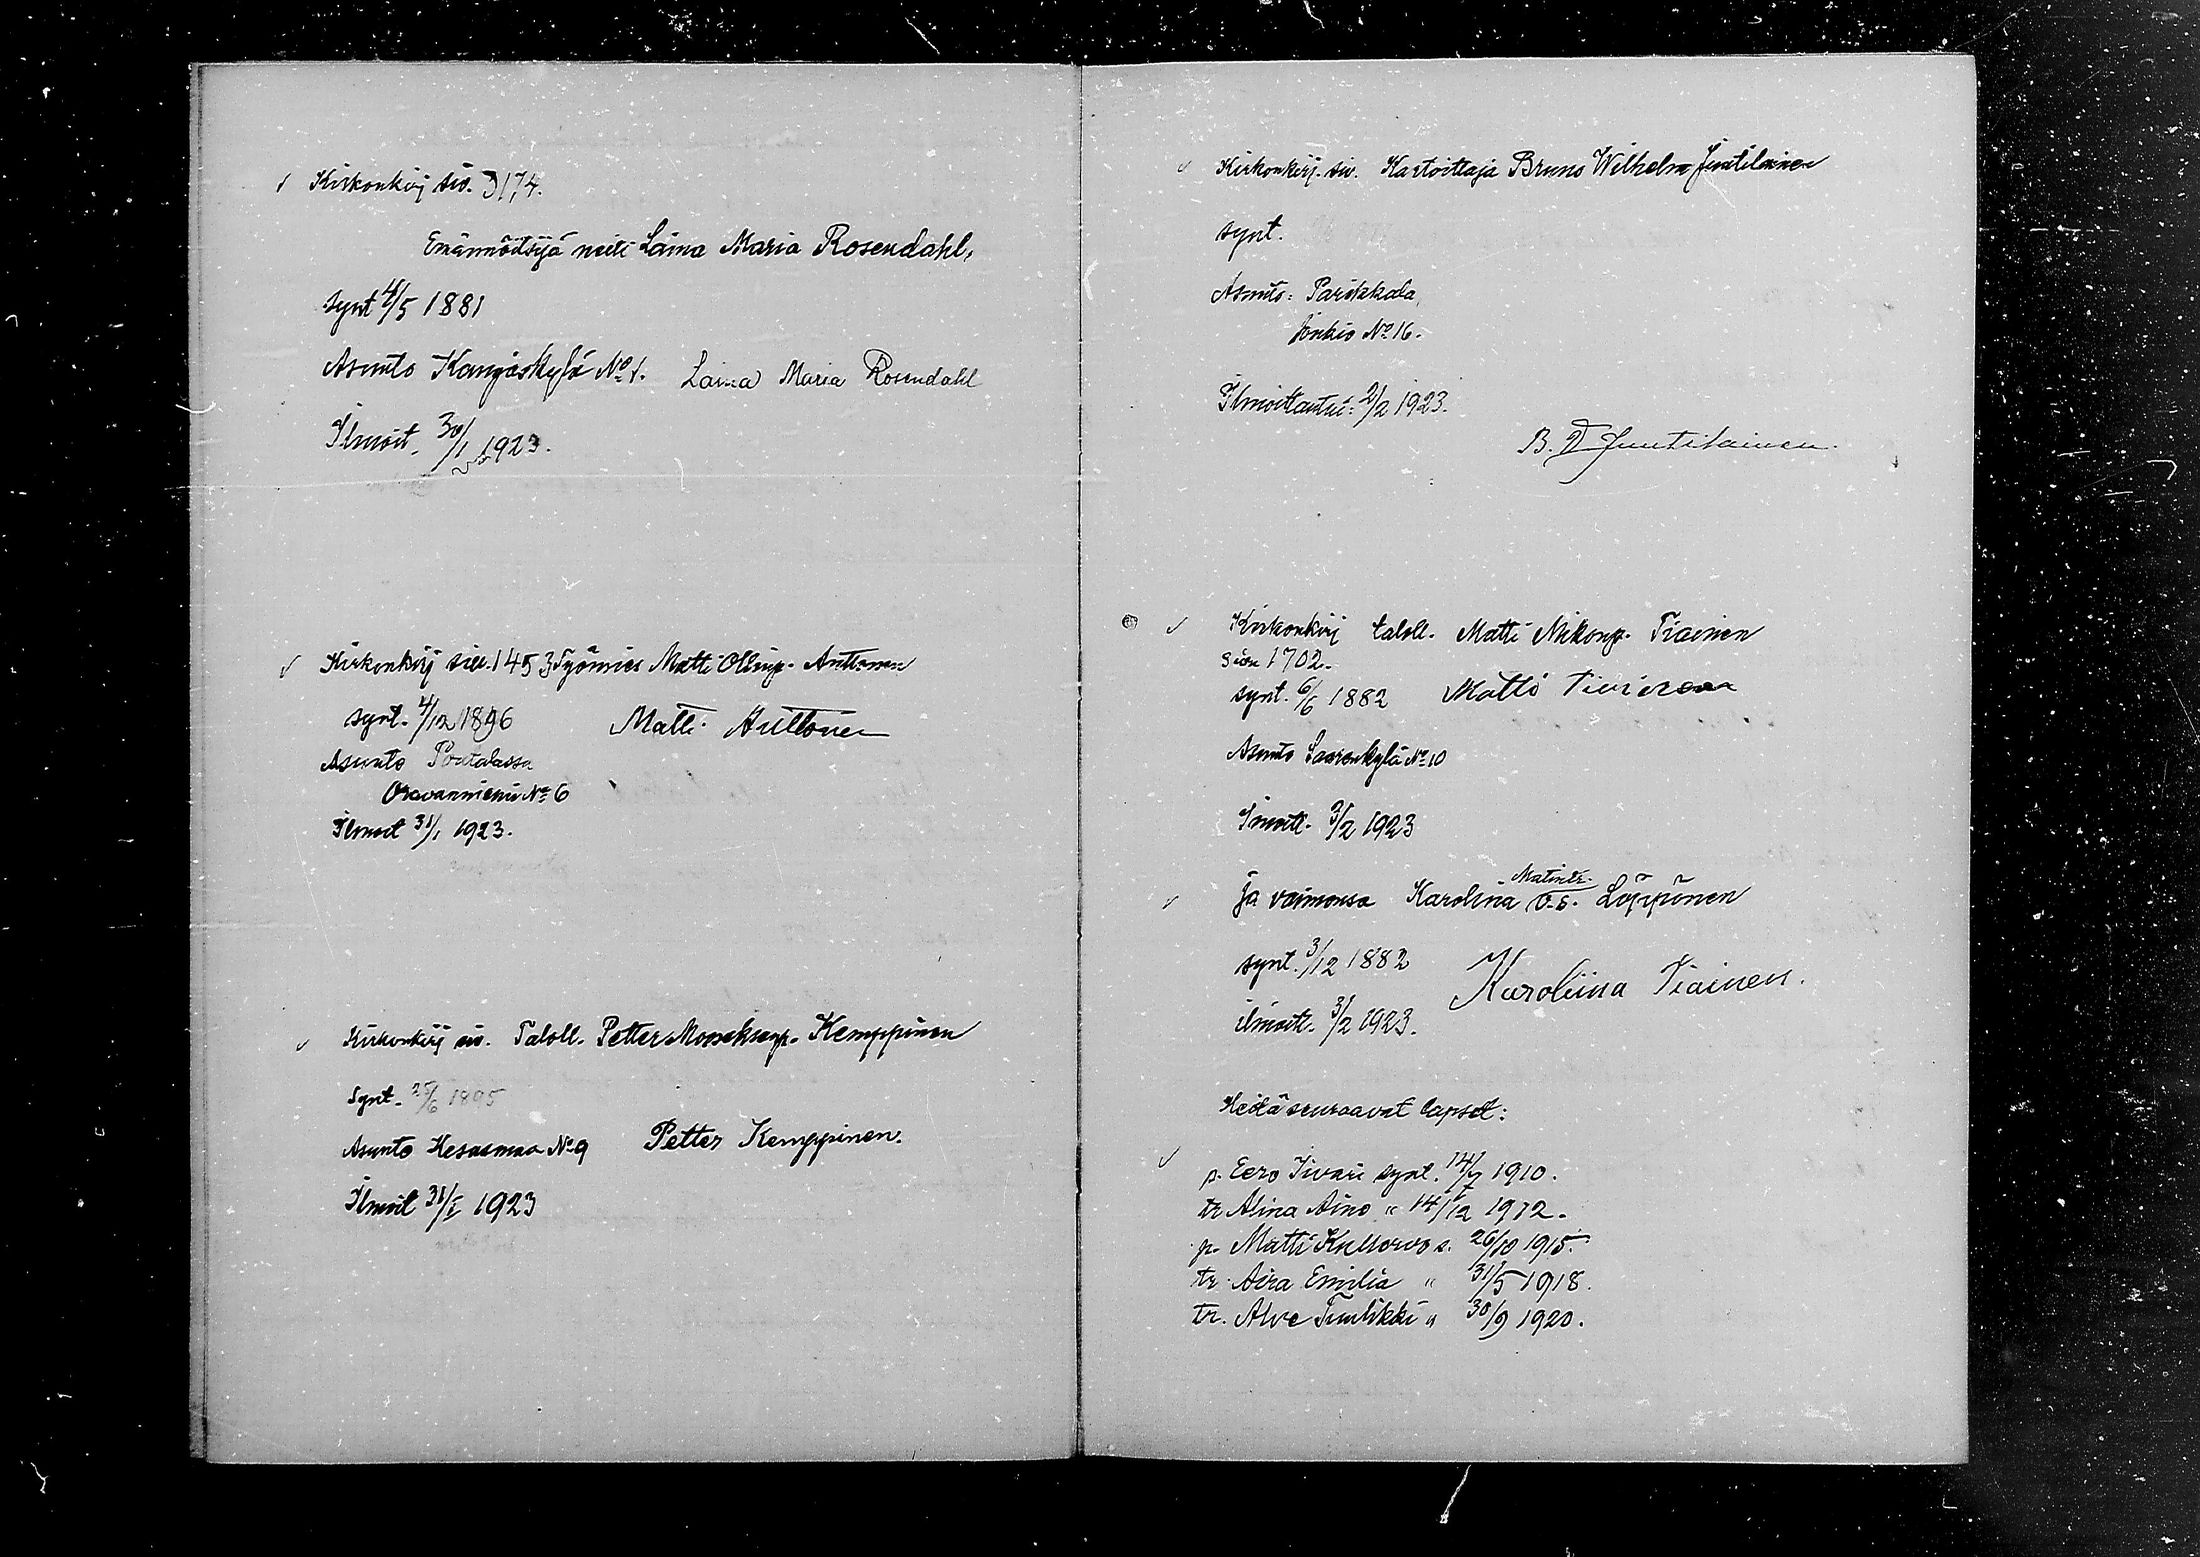 Kirkonkirj siv. 3174.
Emännöitsijä neiti Laina Maria Rosendahl,
synt 4/5 1881
Asunto Kangaskylä No 1. Laina Maria Rosendahl
Ilmoit. 30/1 1923.
Kirkonkirj siv. 1453 Työmies Matti Ollinp. Anttonen
synt. 4/12 1896 Matti Anttonen
Asunto
Oravanniemi No 6
Ilmoit 31/1 1923.
Kirkonkirj siv. Taloll. Petter Mooseksenp. Kemppinen
Synt. 25/6 1895
Asunto Kesusmaa No 9 Petter Kemppinen.
Ilmoit 31/I 1923
Kirkonkirj. siv. Kartoittaja Bruno Wilhelm Juutilainen
synt.
Asunto: Parikkala,
Jonkio No 16.
Ilmoittautui: 2/2 1923.
B. V Juutilainen.
Kirkonkirj taloll. Matti Mikonp. Tiainen
sivu 1702.
synt. 6/6 1882 Matti Tiainen
Asunto Saarenkylä No 10
Imoitt. 3/2 1923
ja vaimonsa Karolina Matintr. o.s. Löppönen
synt. 3/12 1882
Karoliina Tiainen.
ilmoitt. 3/2 1923.
Heitä seuraavat lapset:
p. Eero Iivari synt. 14/7 1910.
tr Alina Aino " 14/12 1912.
p. Matti Kullervo s. 26/10 1915.
tr. Aira Emilia " 31/5 1918.
tr. Alve Tuulikki " 30/9 1920.